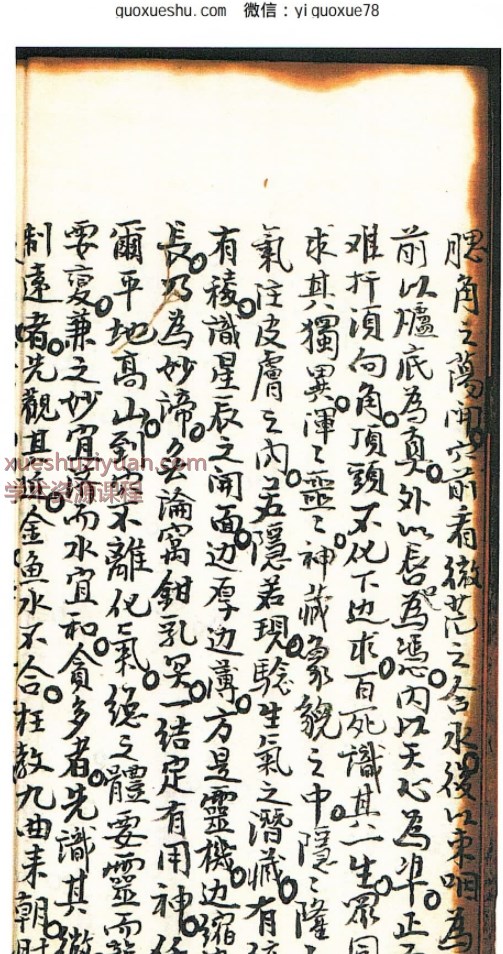 guoxueshu.com 微信：yiguoxue78
腮角之蕩開穴前看微茫之合水後以束咽為
前以爐底為真外以唇為憑内以天心為準正
难扦須向角頂頭不化下边求百死識其一生眾同
求其獨異渾々靈々神藏象貌之中隱々隆
氣注皮膚之内若隱若現驗生氣之潛藏有
有稜識星辰之開面边厚边薄方是靈機边缩
長乃為妙諦勿論窩鉗乳突一結定有用神
爾平地高山到不離化氣總之體要靈而
要裏兼之妙宜而水宜和貪多者先識其微
制遠者先觀其金魚水不合枉教九曲来朝
xueshuziyuan.com
学术资源课程